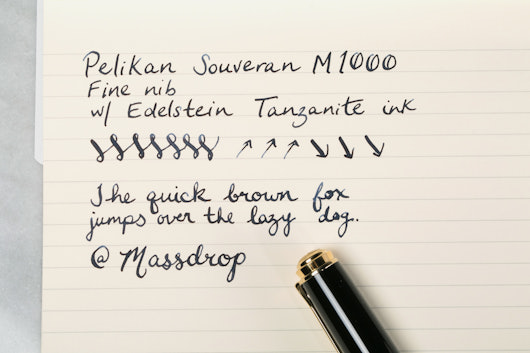 Pelikan Souveran M1000
Fine nib
w/ Edelstein Tanzanite ink
The quick brown fox
jumps over the lazy dog.
@Massdrop